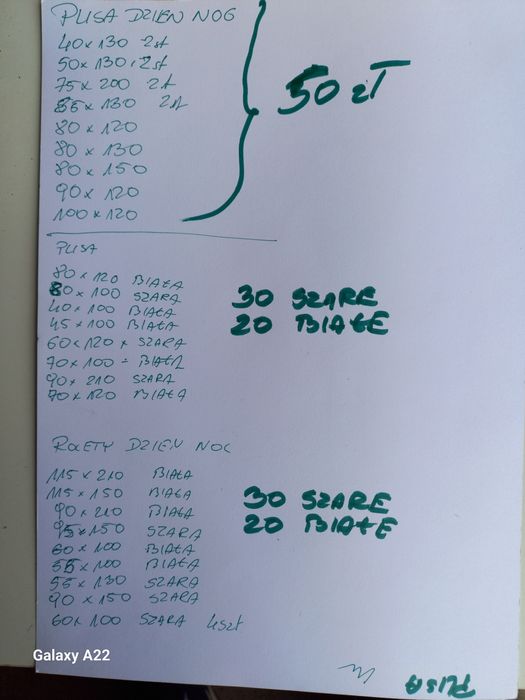 PLISA DZIEŃ NOC
40 x 130 2st
50 x 130 2st
75 x 200 2st
55 x 130 2st
80 x 120
80 x 130
80 x 150
90 x 120
100 x 120
50 zł
PLISA
80 x 120 BIAŁA
80 x 100 SZARA
40 x 100 BIAŁA
45 x 100 BIAŁA
60 x 120 x SZARA
70 x 100 - BIAŁA
90 x 210 SZARA
70 x 120 BIAŁA
30 SZARE
20 BIAŁE
ROLETY DZIEŃ NOC
115 x 210 BIAŁA
115 x 150 BIAŁA
90 x 210 BIAŁA
95 x 150 SZARA
60 x 100 BIAŁA
55 x 100 BIAŁA
55 x 130 SZARA
90 x 150 SZARA
60 x 100 SZARA 4szt
30 SZARE
20 BIAŁE
PLISA
Galaxy A22